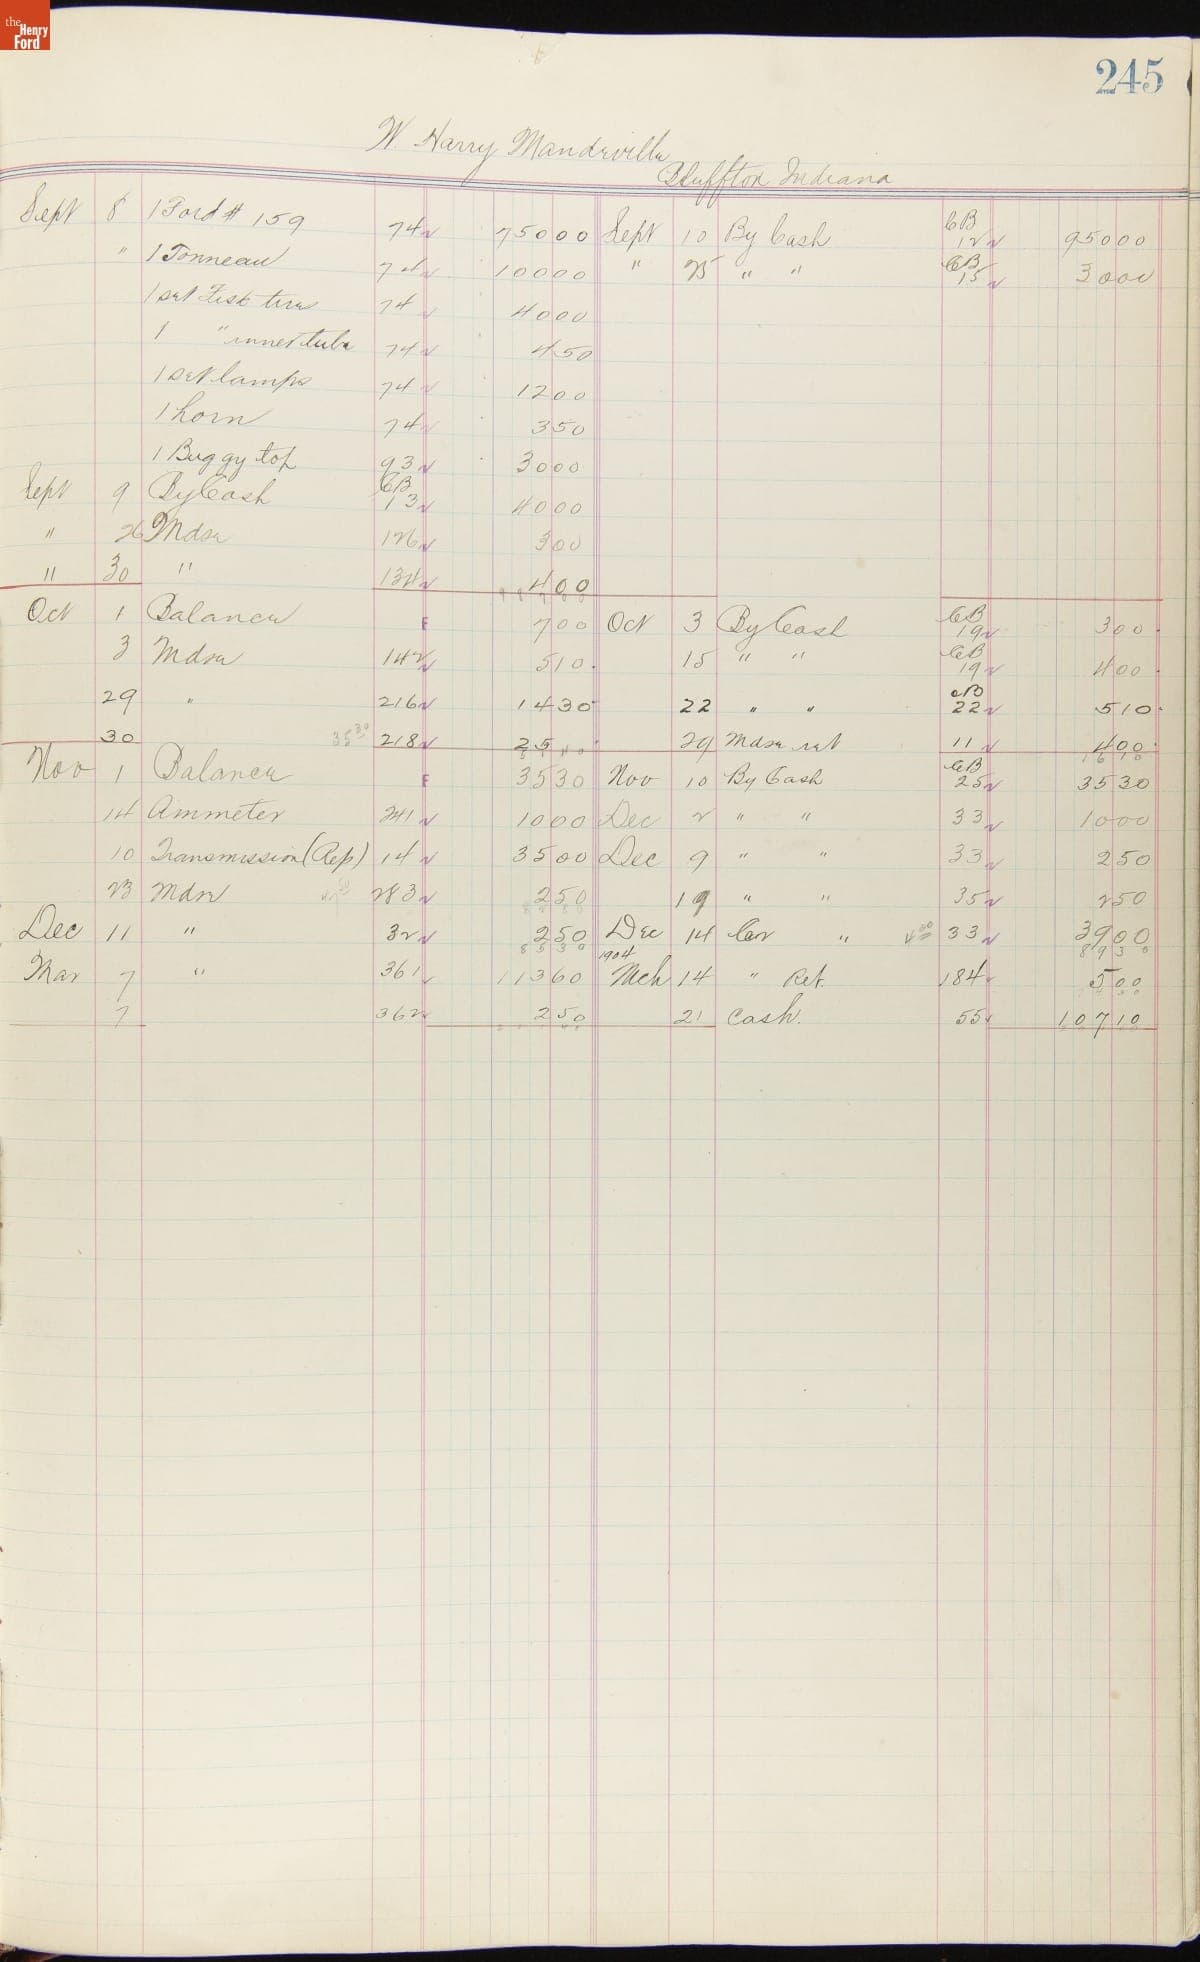 the Henry Ford
245
W. Harry Mandeville
Bluffton Indiana
Sept 8 1 Ford # 159 74 750 00 Sept 10 By Cash CB 12 950 00
" 1 Tonneau 74 100 00 " 25 " " CB 15 30 00
1 set Fisk tires 74 40 00
1 " inner tube 74 4 50
1 set lamps 74 12 00
1 horn 74 3 50
1 Buggy top 93 30 00
Sept 9 By Cash CB 13 40 00
" 26 Mdse 126 3 00
" 30 " 134 4 00
Oct 1 Balance F 7 00 Oct 3 By Cash CB 19 3 00
3 Mdse 142 5 10 15 " " CB 19 4 00
29 " 216 14 30 22 " " CB 22 5 10
30 35 30 218 25 29 Mdse ret 11 4 00
16 10
Nov 1 Balance F 35 30 Nov 10 By Cash CB 25 35 30
14 Ammeter 241 10 00 Dec 2 " " 33 10 00
10 Transmission (Rep) 14 35 00 Dec 9 " " 33 2 50
23 Mdse 283 2 50 19 " " 35 2 50
Dec 11 " 32 2 50 Dec 14 Car " 4 00 33 39 00
85 30 89 30
1904
Mar 7 " 361 113 60 Mch 14 " Ret. 184 5 00
7 362 2 50 21 Cash. 55 107 10